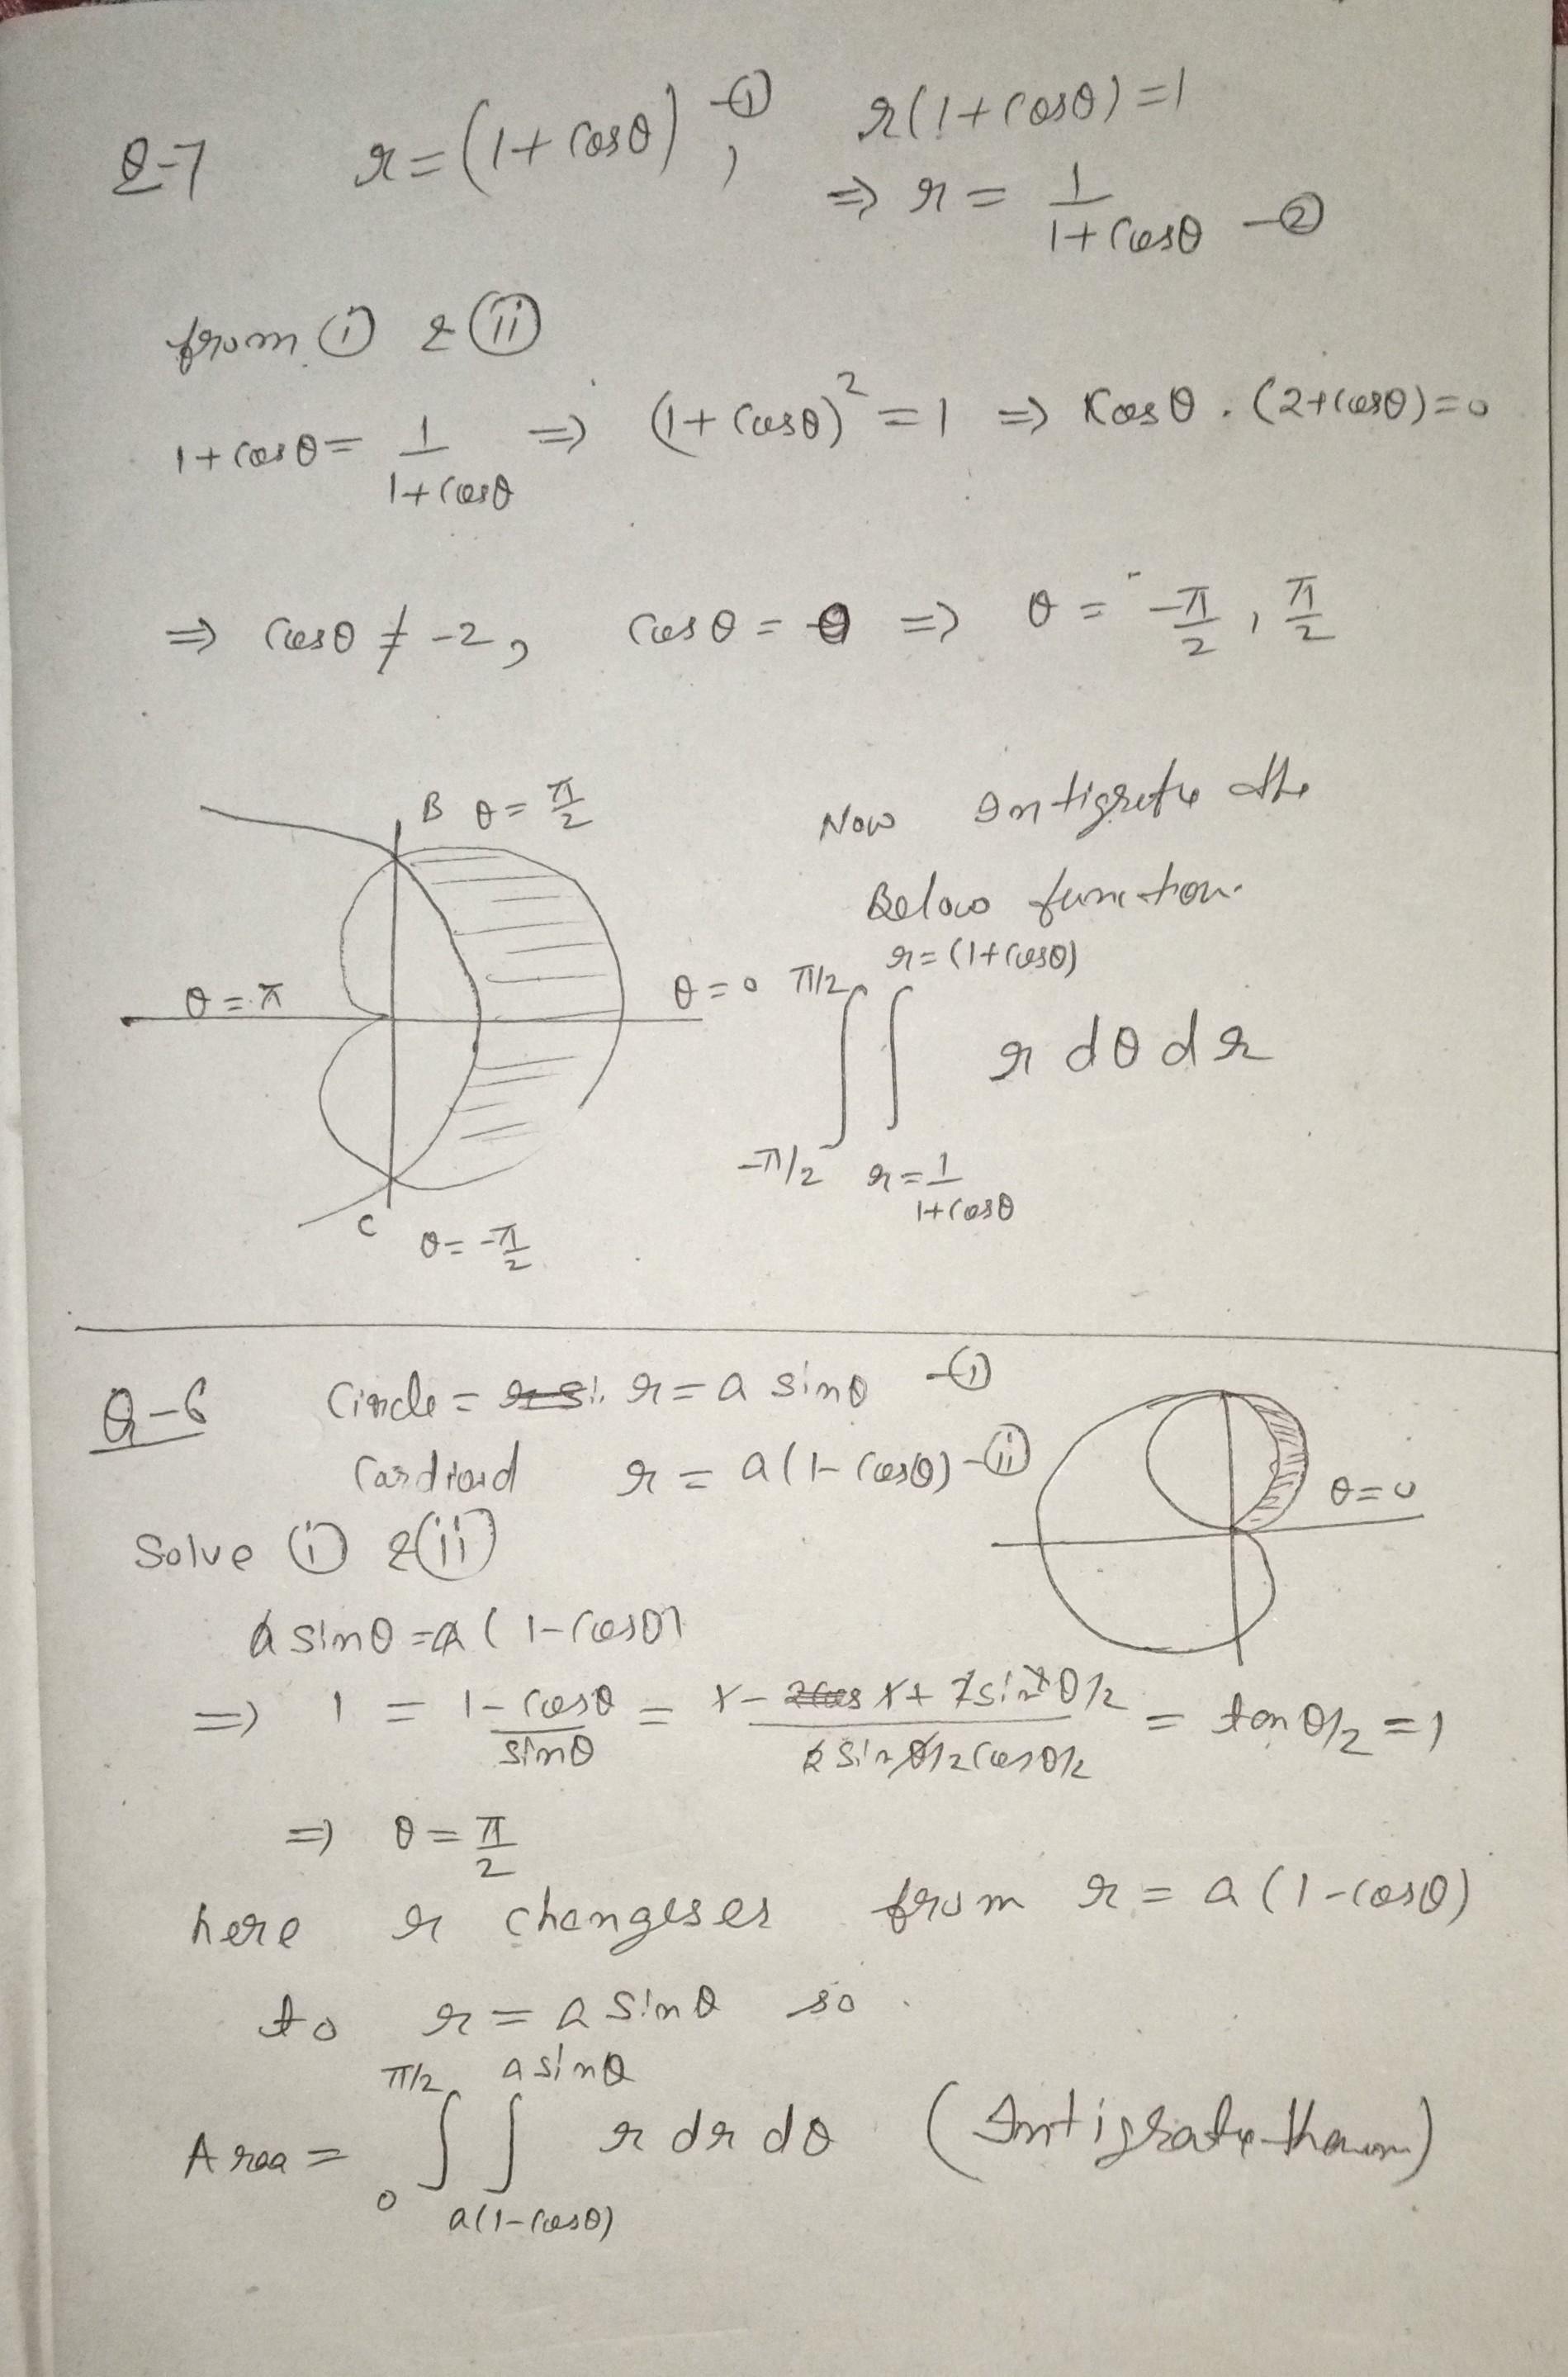 Q-7 r=(1+cosθ) -①, r(1+cosθ)=1
⇒ r = 1/(1+cosθ) -②
from ⓘ & ⓘⓘ
1+cosθ = 1/(1+cosθ) ⇒ (1+cosθ)² = 1 ⇒ cosθ . (2+cosθ)=0
⇒ cosθ ≠ -2, cosθ = 0 ⇒ θ = -π/2, π/2
B θ = π/2
Now Intigrate the
Below function
θ = π
θ = 0
∫_{-π/2}^{π/2} ∫_{r=1/(1+cosθ)}^{r=(1+cosθ)} r dθ dr
C
θ = -π/2
Q-6 Circle = r = a sinθ -ⓘ
Cardioid r = a(1-cosθ) -ⓘⓘ
θ=0
Solve ⓘ & ⓘⓘ
a sinθ = a(1-cosθ)
⇒ 1 = (1-cosθ)/sinθ = (1-1+2sin²θ/2)/(2 sinθ/2 cosθ/2) = tan θ/2 = 1
⇒ θ = π/2
here r changeses from r = a(1-cosθ)
to r = a sinθ so
Area = ∫_{0}^{π/2} ∫_{a(1-cosθ)}^{a sinθ} r dr dθ (Intigrate them)